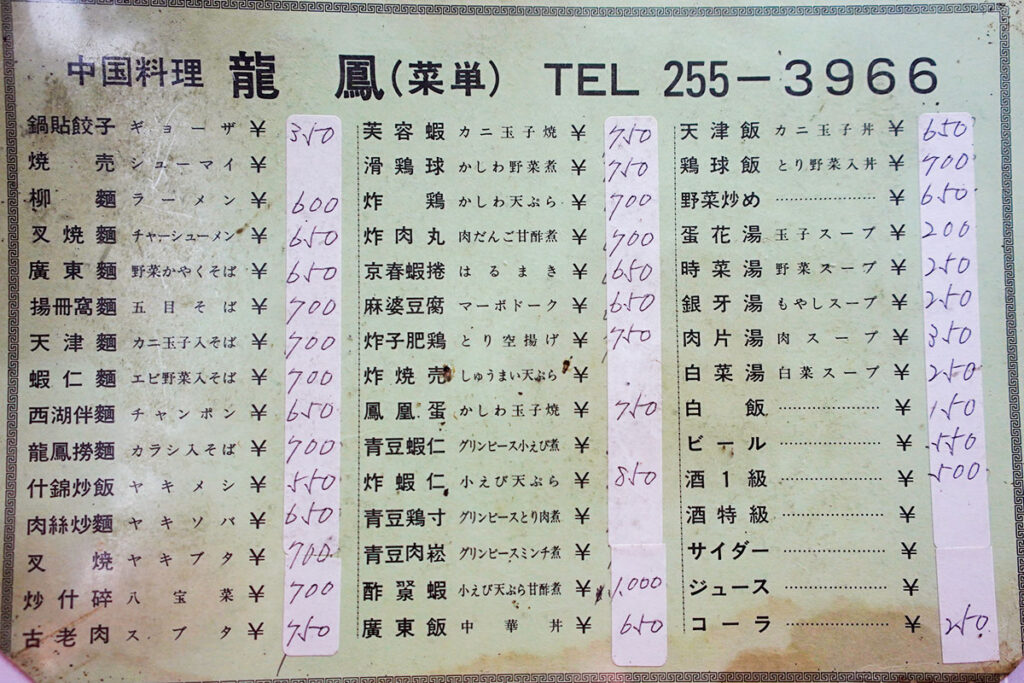 中国料理 龍鳳(菜単) TEL 255-3966
鍋貼餃子 ギョーザ ¥ 350
焼売 シューマイ ¥
柳麵 ラーメン ¥ 600
叉焼麵 チャーシューメン ¥ 650
廣東麵 野菜かやくそば ¥ 650
揚冊窩麵 五目そば ¥ 700
天津麵 カニ玉子入そば ¥ 700
蝦仁麵 エビ野菜入そば ¥ 700
西湖伴麵 チャンポン ¥ 650
龍鳳撈麵 カラシ入そば ¥ 700
什錦炒飯 ヤキメシ ¥ 550
肉絲炒麵 ヤキソバ ¥ 650
叉焼 ヤキブタ ¥ 700
炒什碎 八宝菜 ¥ 700
古老肉 スブタ ¥ 750
芙容蝦 カニ玉子焼 ¥ 750
滑鶏球 かしわ野菜煮 ¥ 750
炸鶏 かしわ天ぷら ¥ 700
炸肉丸 肉だんご甘酢煮 ¥ 700
京春蝦捲 はるまき ¥ 650
麻婆豆腐 マーボドーク ¥ 650
炸子肥鶏 とり空揚げ ¥ 750
炸焼売 しゅうまい天ぷら ¥
鳳凰蛋 かしわ玉子焼 ¥ 750
青豆蝦仁 グリンピース小えび煮 ¥
炸蝦仁 小えび天ぷら ¥ 850
青豆鶏寸 グリンピースとり肉煮 ¥
青豆肉崧 グリンピースミンチ煮 ¥
酢 蝦 小えび天ぷら甘酢煮 ¥ 1,000
廣東飯 中華丼 ¥ 650
天津飯 カニ玉子丼 ¥ 650
鶏球飯 とり野菜入丼 ¥ 700
野菜炒め ¥ 650
蛋花湯 玉子スープ ¥ 200
時菜湯 野菜スープ ¥ 250
銀牙湯 もやしスープ ¥ 250
肉片湯 肉スープ ¥ 350
白菜湯 白菜スープ ¥ 250
白飯 ¥ 150
ビール ¥ 550
酒1級 ¥ 500
酒特級 ¥
サイダー ¥
ジュース ¥
コーラ ¥ 250